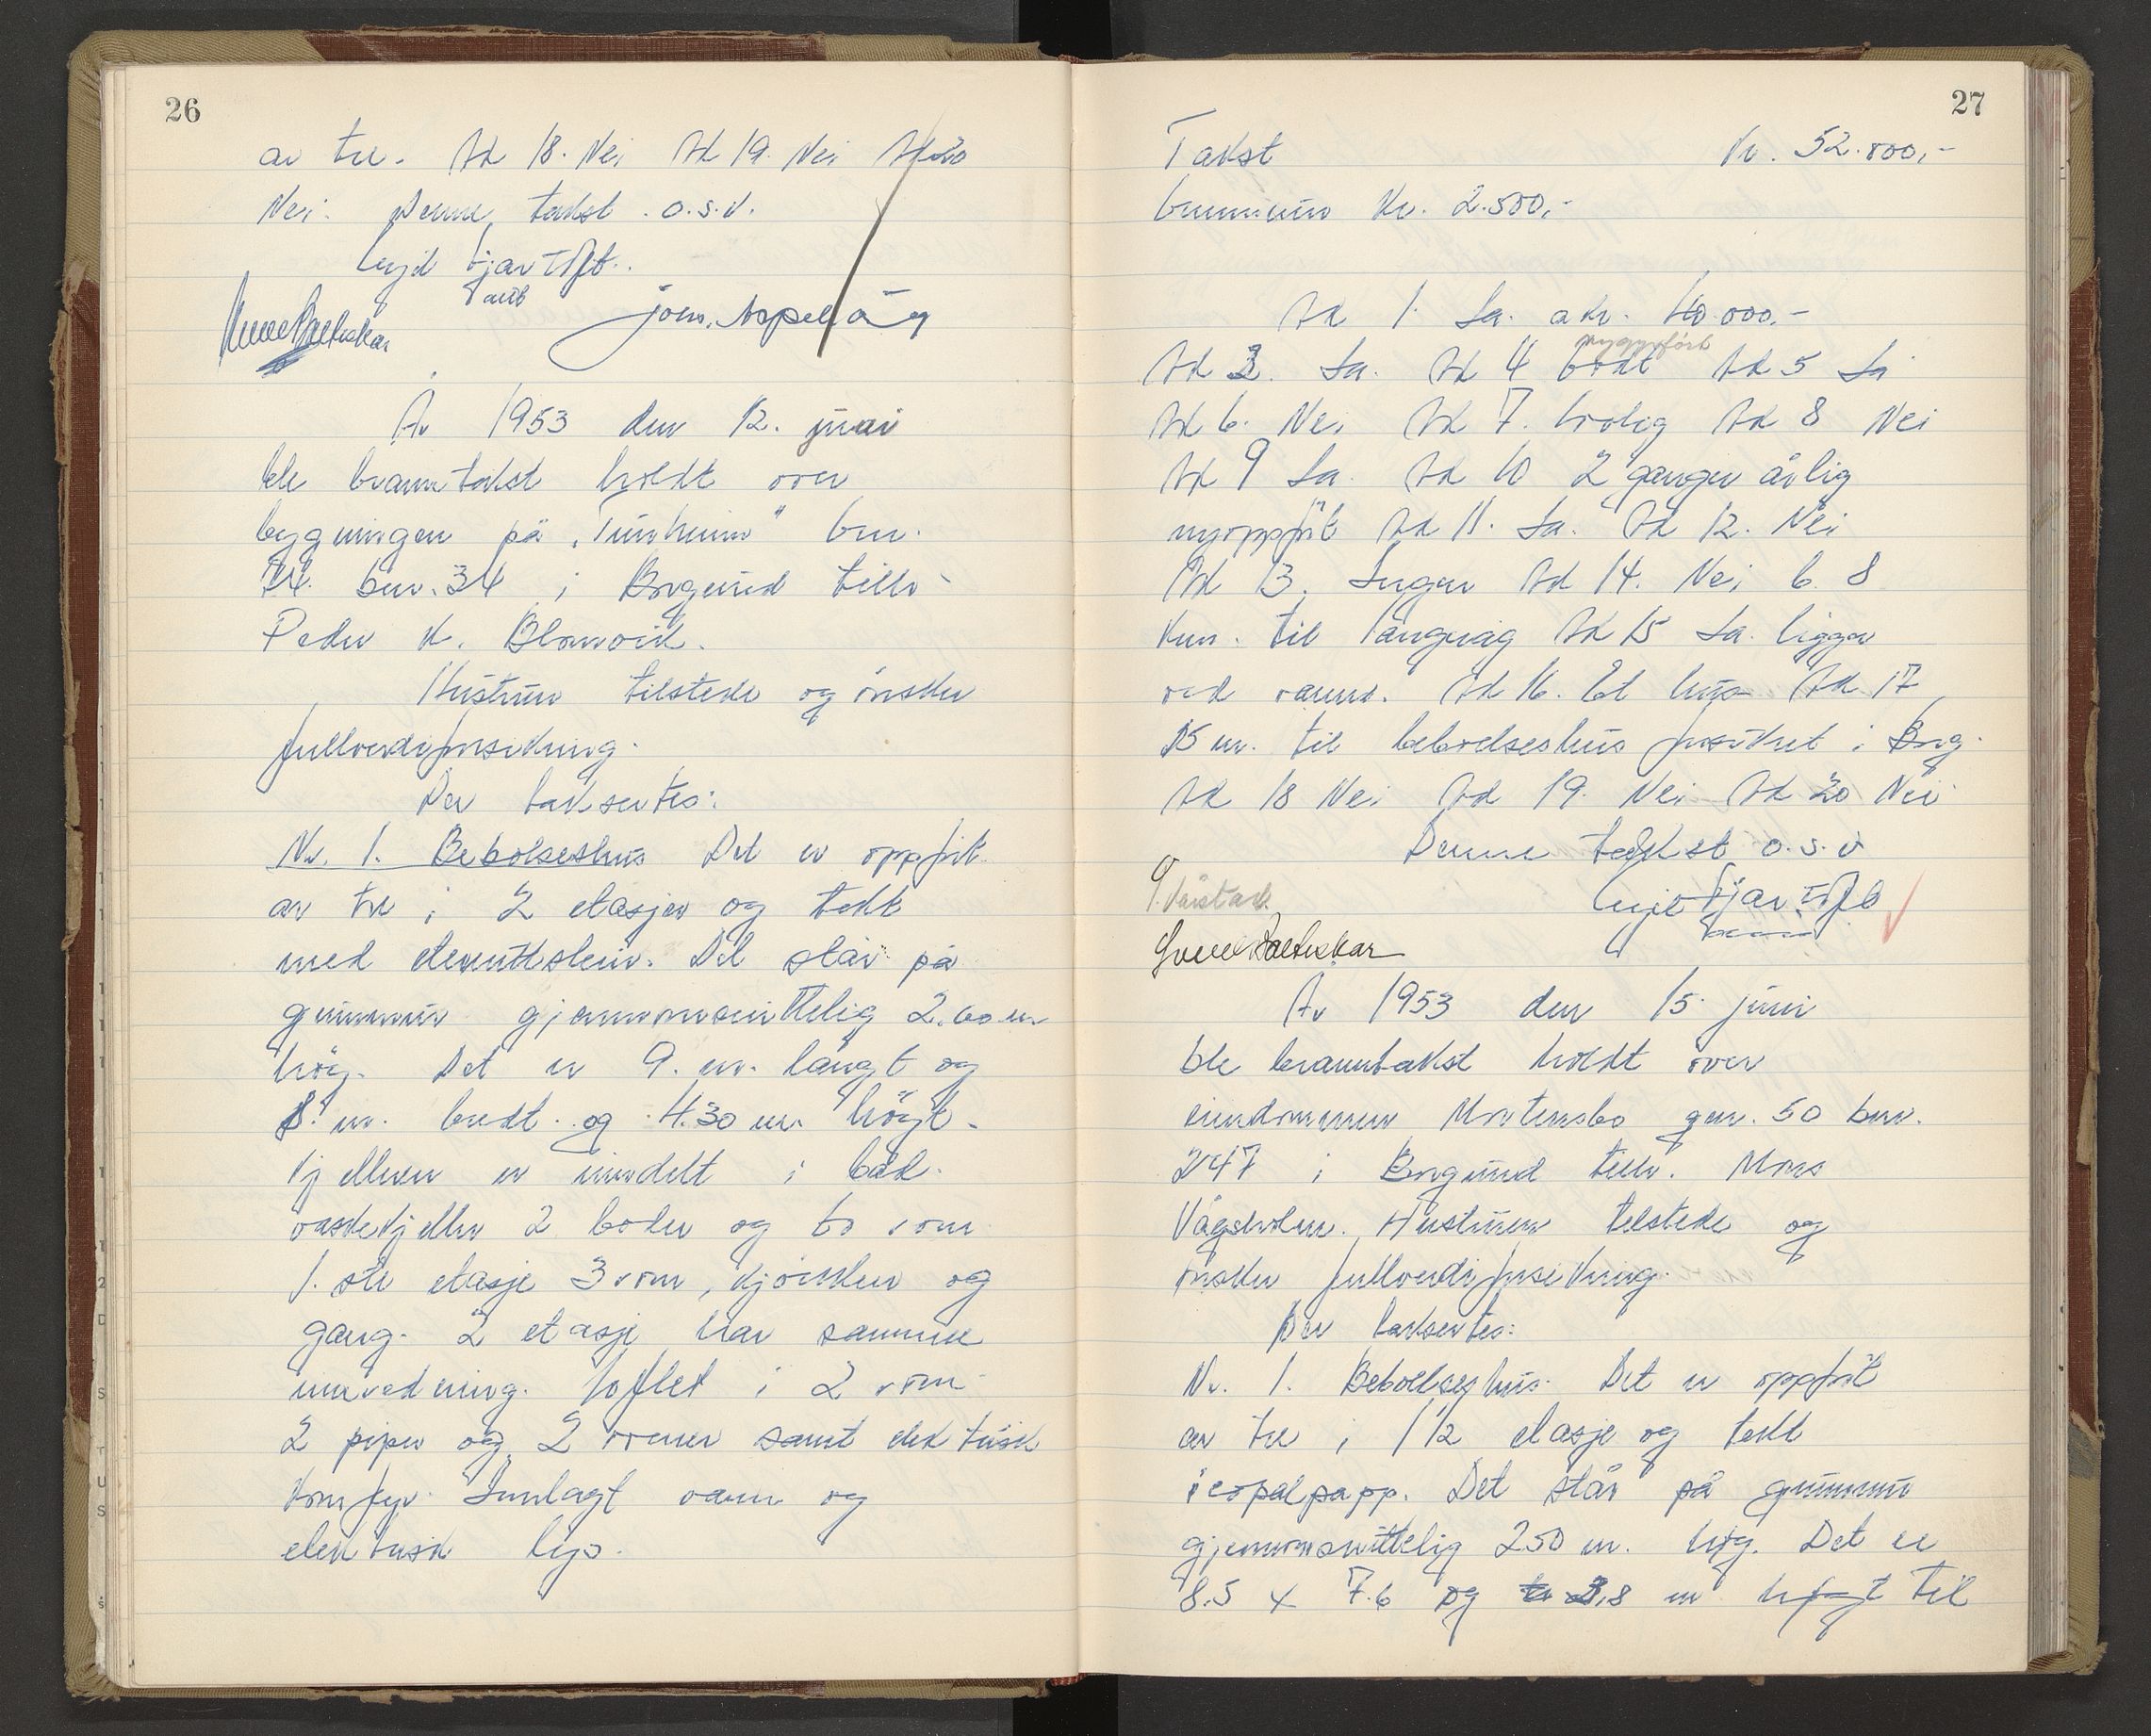 26
av tre. Ad 18. Nei Ad 19. Nei Ad 20
Nei. Denne takst o.s.v.
År 1953 den 12. juni
ble branntakst holdt over
bygningen på "Tunheim" gnr.
74. bnr. 34 i Borgund tilh.
Peder K. Blomvik.
Hustruen tilstede og ønsker
fullverdiforsikring.
Der taksertes:
Nr. 1. Bebolseshus Det er oppført
av tre i 2 etasjer og tekt
med sementstein. Det står på
grunnmur gjennomsnittelig 2.60 m
høg. Det er 9. m. langt og
8. m. bredt og 4.30 m. høgt.
Kjelleren er inndelt i bad.
vaskekjeller 2 boder og to rom
1. ste etasje 3 rom, kjøkken og
gang. 2 etasje har samme
innredning. Loftet i 2 rom
2 piper og 2 ovner samt elektrisk
komfyr. Innlagt vann og
elektrisk lys.
27
Takst Kr. 52.800,-
Grunnmur Kr. 2.500,-
Ad 1. Ja. a kr. 40.000.-
Ad 3. Ja. Ad 4 Godt Ad 5 Ja
Ad 6. Nei Ad 7. bolig Ad 8 Nei
Ad 9 Ja. Ad 10 2 ganger årlig
nyoppført Ad 11. Ja. Ad 12. Nei
Ad 13. Ingen Ad 14. Nei 6. 8
km. til Langvåg Ad 15 Ja. ligger
ved vann. Ad 16. Et hus Ad 17
15 m. til bebolseshus forsikret i Brg.
Ad 18 Nei Ad 19. Nei Ad 20 Nei
Denne takst o.s.v
År 1953 den 15. juni
ble branntakst holdt over
eiendommen Mortensbo gnr. 50 bnr.
247 i Borgund tilh. Mons
Vågsholm. Hustruen tilstede og
ønsker fullverdiforsikring.
Der taksertes:
Nr. 1. Bebolseshus. Det er oppført
av tre i 1 1/2 etasje og tekt
icopalpapp. Det står på grunnmur
gjennomsnittelig 250 m. høg. Det er
8.5 x 7.6 og 3.8 m høgt til